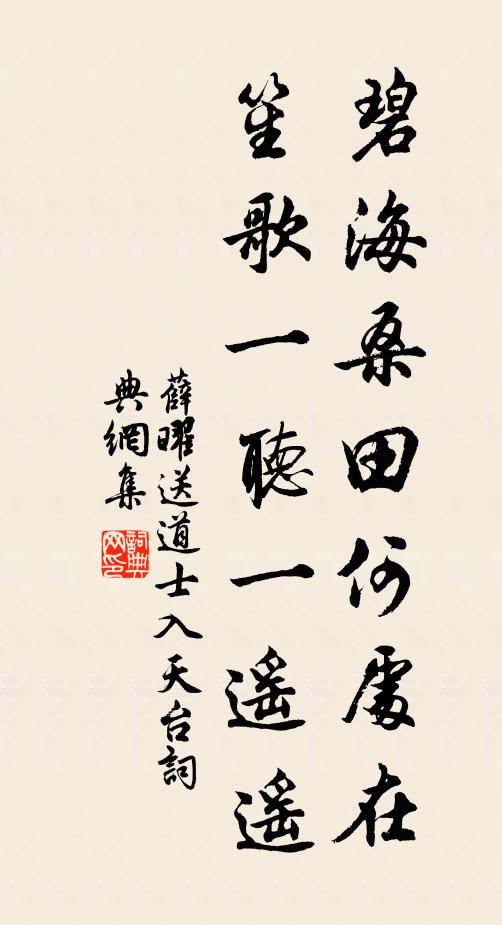 碧海桑田何處在
笙歌一聽一遙遙
薛曜送道士入天台詞
典網集
詞典
网印